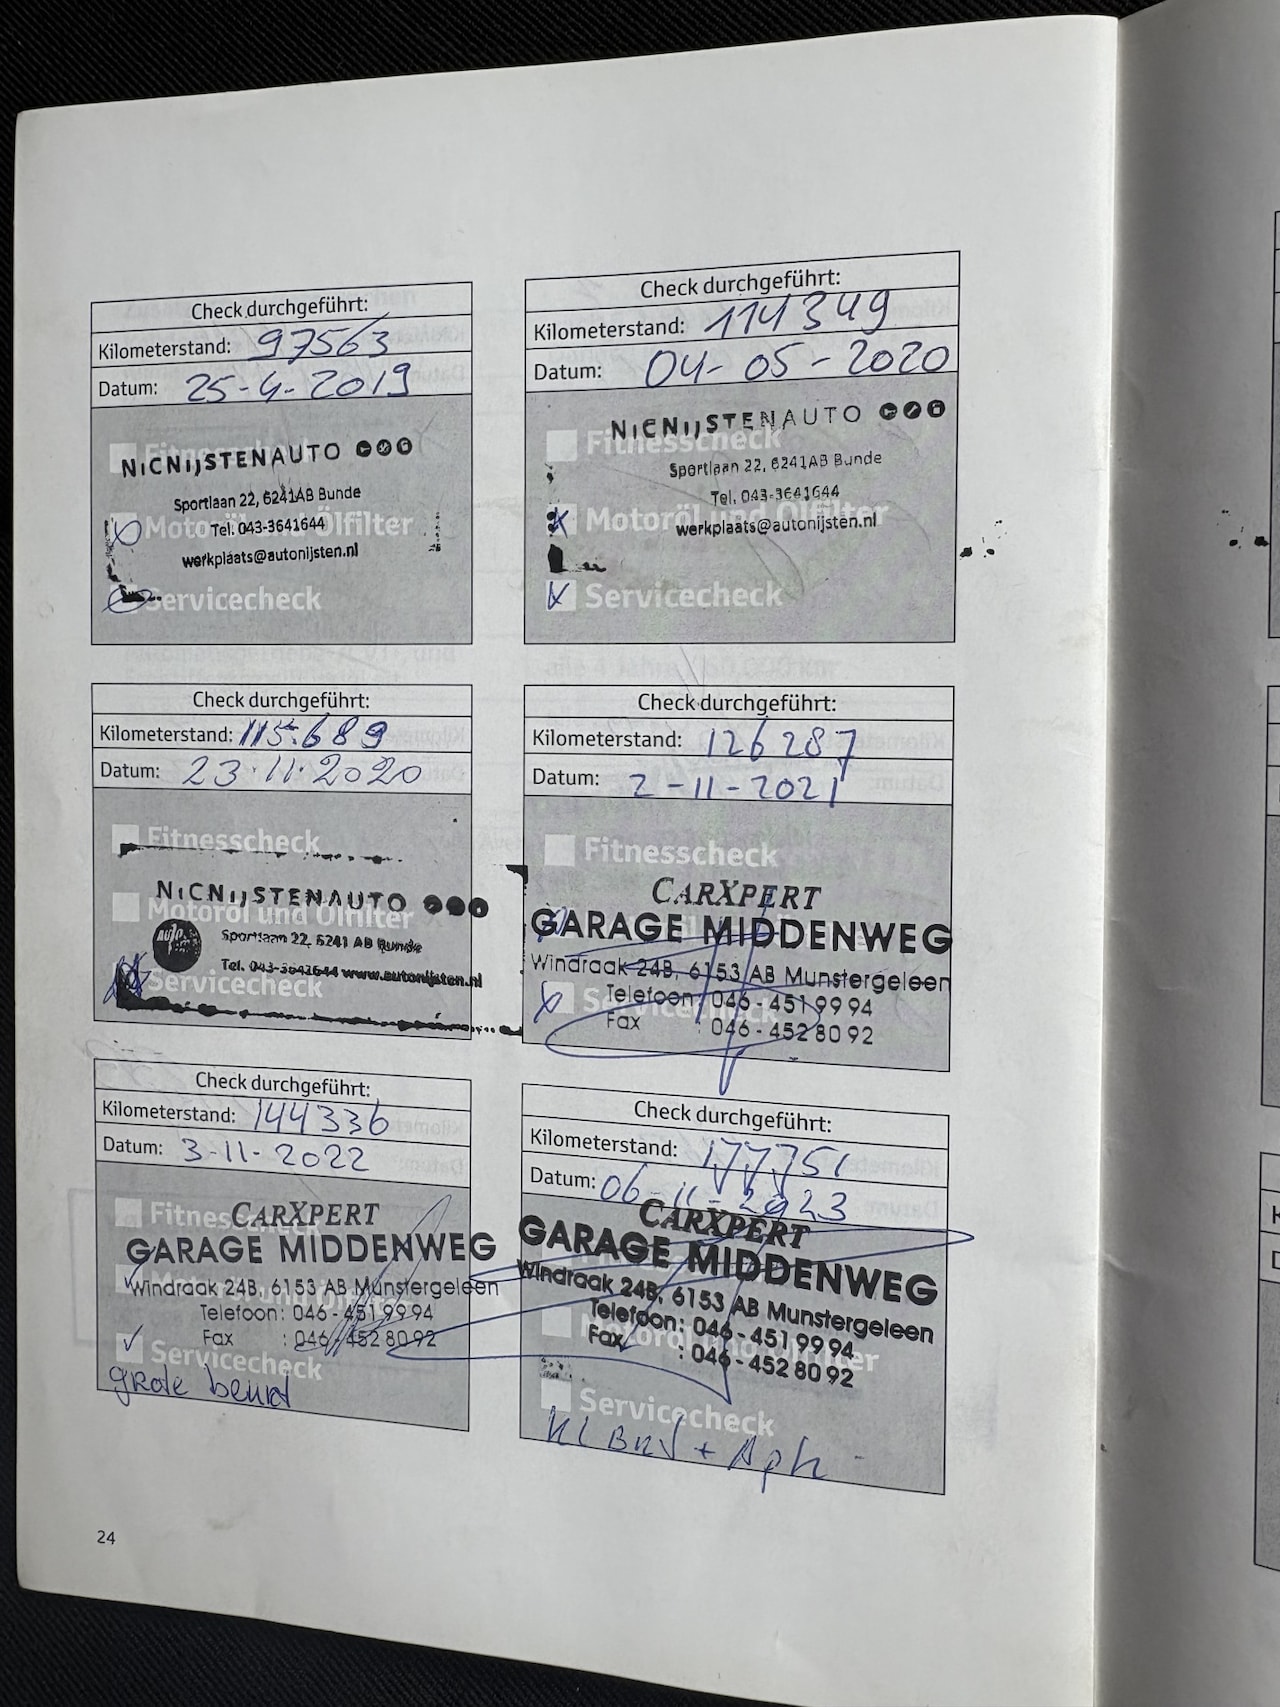 Check durchgeführt:
Kilometerstand: 97563
Datum: 25-4-2019
Fitnesscheck
NICNIJSTENAUTO
Sportlaan 22, 6241AB Bunde
Motoröl und Ölfilter
Tel. 043-3641644
werkplaats@autonijsten.nl
Servicecheck
Check durchgeführt:
Kilometerstand: 114349
Datum: 04-05-2020
NICNIJSTENAUTO
Fitnesscheck
Sportlaan 22, 6241AB Bunde
Tel. 043-3641644
Motoröl und Ölfilter
werkplaats@autonijsten.nl
Servicecheck
Check durchgeführt:
Kilometerstand: 115.689
Datum: 23.11.2020
Fitnesscheck
NICNIJSTENAUTO
Motoröl und Ölfilter
Sportlaan 22, 6241 AB Bunde
Tel. 043-3641644 www.autonijsten.nl
Servicecheck
Check durchgeführt:
Kilometerstand: 126287
Datum: 2-11-2021
Fitnesscheck
CARXPERT
GARAGE MIDDENWEG
Windraak 24B, 6153 AB Munstergeleen
Telefoon: 046-451 99 94
Servicecheck
Fax : 046-452 80 92
Check durchgeführt:
Kilometerstand: 144336
Datum: 3-11-2022
Fitnesscheck
CARXPERT
GARAGE MIDDENWEG
Windraak 24B, 6153 AB Munstergeleen
Telefoon: 046-451 99 94
Fax : 046-452 80 92
Servicecheck
grote beurt
Check durchgeführt:
Kilometerstand: 177751
Datum: 06-11-2023
CARXPERT
GARAGE MIDDENWEG
Windraak 24B, 6153 AB Munstergeleen
Telefoon: 046-451 99 94
Motoröl und Ölfilter
Fax : 046-452 80 92
Servicecheck
Kl + Apk
24